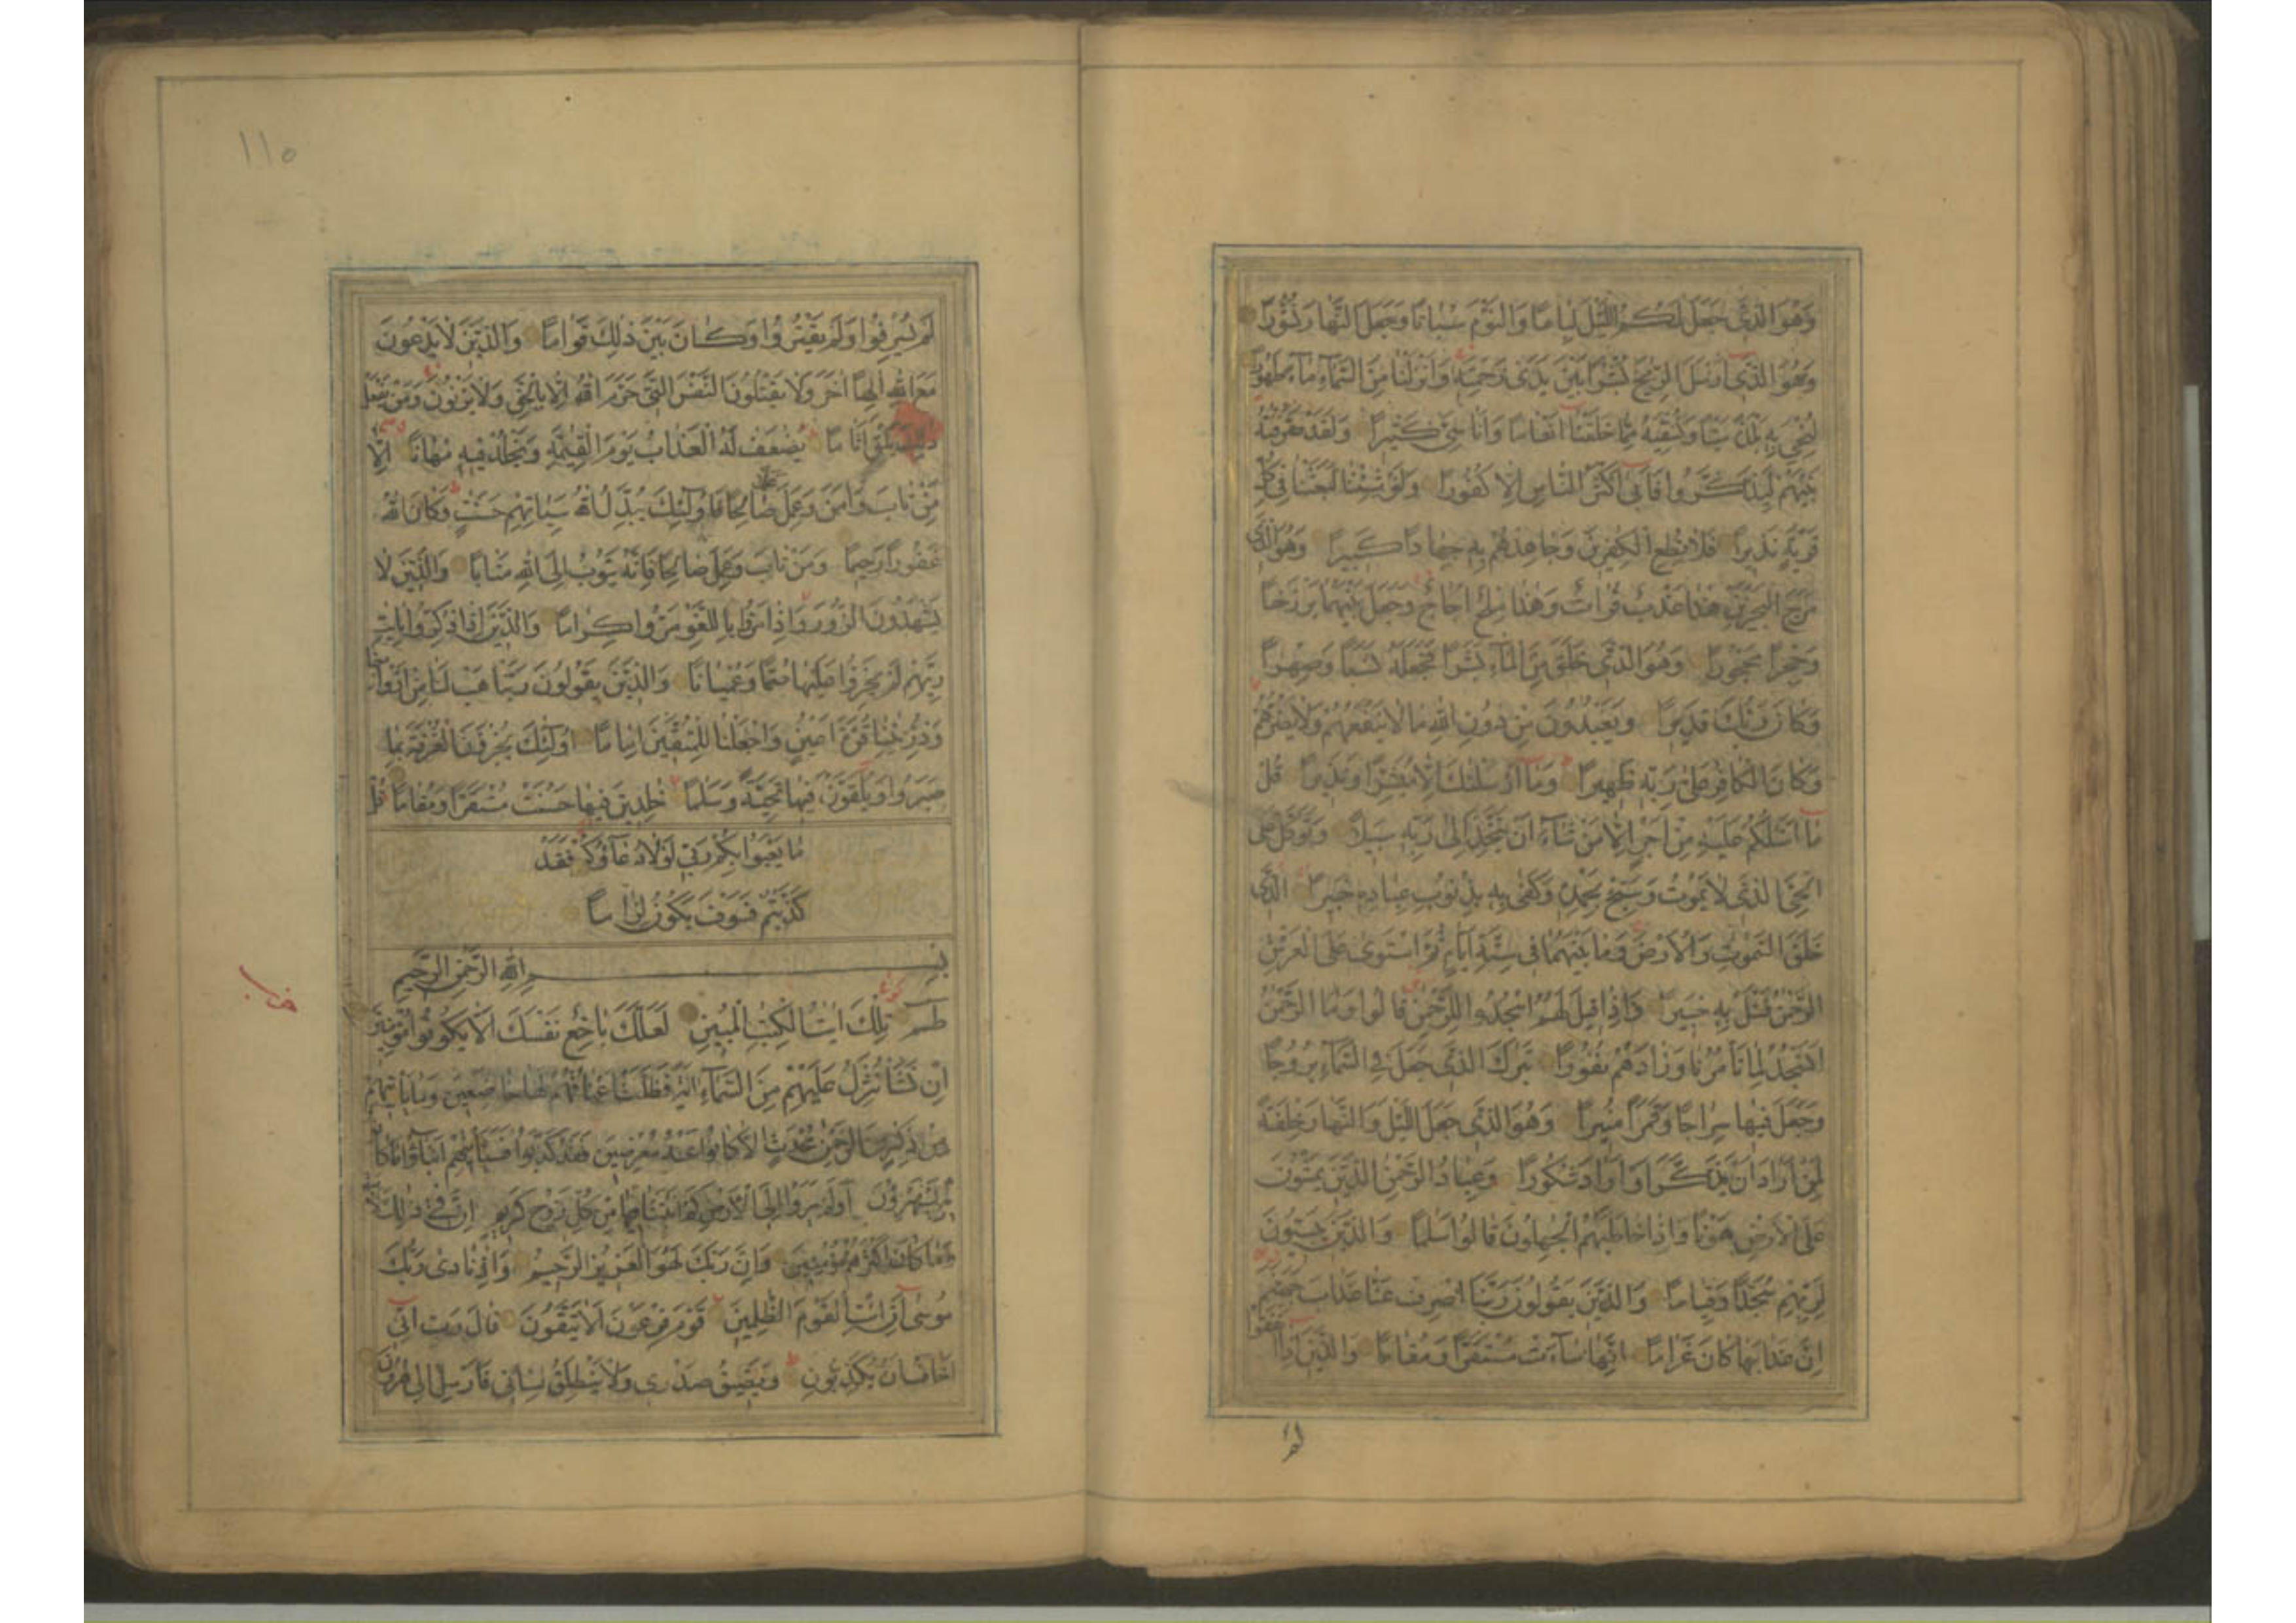 وَهُوَ الَّذِي جَعَلَ لَكُمُ اللَّيْلَ لِبَاسًا وَالنَّوْمَ سُبَاتًا وَجَعَلَ النَّهَارَ نُشُورًا
وَهُوَ الَّذِي أَرْسَلَ الرِّيحَ بُشْرًا بَيْنَ يَدَيْ رَحْمَتِهِ وَأَنْزَلْنَا مِنَ السَّمَاءِ مَاءً طَهُورًا
لِنُحْيِيَ بِهِ بَلْدَةً مَيْتًا وَنُسْقِيَهُ مِمَّا خَلَقْنَا أَنْعَامًا وَأَنَاسِيَّ كَثِيرًا وَلَقَدْ صَرَّفْنَهُ
بَيْنَهُمْ لِيَذَّكَّرُوا فَأَبَى أَكْثَرُ النَّاسِ إِلَّا كُفُورًا وَلَوْ شِئْنَا لَبَعَثْنَا فِي كُلِّ
قَرْيَةٍ نَذِيرًا فَلَا تُطِعِ الْكَفِرِينَ وَجَاهِدْهُمْ بِهِ جِهَادًا كَبِيرًا وَهُوَ الَّذِي
مَرَجَ الْبَحْرَيْنِ هَذَا عَذْبٌ فُرَاتٌ وَهَذَا مِلْحٌ أُجَاجٌ وَجَعَلَ بَيْنَهُمَا بَرْزَخًا
وَحِجْرًا مَحْجُورًا وَهُوَ الَّذِي خَلَقَ مِنَ الْمَاءِ بَشَرًا فَجَعَلَهُ نَسَبًا وَصِهْرًا
وَكَانَ رَبُّكَ قَدِيرًا وَيَعْبُدُونَ مِنْ دُونِ اللَّهِ مَا لَا يَنْفَعُهُمْ وَلَا يَضُرُّهُمْ
وَكَانَ الْكَافِرُ عَلَى رَبِّهِ ظَهِيرًا وَمَا أَرْسَلْنَكَ إِلَّا مُبَشِّرًا وَنَذِيرًا قُلْ
مَا أَسْئَلُكُمْ عَلَيْهِ مِنْ أَجْرٍ إِلَّا مَنْ شَاءَ أَنْ يَتَّخِذَ إِلَى رَبِّهِ سَبِيلًا وَتَوَكَّلْ عَلَى
الْحَيِّ الَّذِي لَا يَمُوتُ وَسَبِّحْ بِحَمْدِهِ وَكَفَى بِهِ بِذُنُوبِ عِبَادِهِ خَبِيرًا الَّذِي
خَلَقَ السَّمَوَتِ وَالْأَرْضَ وَمَا بَيْنَهُمَا فِي سِتَّةِ أَيَّامٍ ثُمَّ اسْتَوَى عَلَى الْعَرْشِ
الرَّحْمَنُ فَسْئَلْ بِهِ خَبِيرًا وَإِذَا قِيلَ لَهُمُ اسْجُدُوا لِلرَّحْمَنِ قَالُوا وَمَا الرَّحْمَنُ
أَنَسْجُدُ لِمَا تَأْمُرُنَا وَزَادَهُمْ نُفُورًا تَبَرَكَ الَّذِي جَعَلَ فِي السَّمَاءِ بُرُوجًا
وَجَعَلَ فِيهَا سِرَاجًا وَقَمَرًا مُنِيرًا وَهُوَ الَّذِي جَعَلَ اللَّيْلَ وَالنَّهَارَ خِلْفَةً
لِمَنْ أَرَادَ أَنْ يَذَّكَّرَ أَوْ أَرَادَ شُكُورًا وَعِبَادُ الرَّحْمَنِ الَّذِينَ يَمْشُونَ
عَلَى الْأَرْضِ هَوْنًا وَإِذَا خَاطَبَهُمُ الْجَهِلُونَ قَالُوا سَلَمًا وَالَّذِينَ يَبِيتُونَ
لِرَبِّهِمْ سُجَّدًا وَقِيَامًا وَالَّذِينَ يَقُولُونَ رَبَّنَا اصْرِفْ عَنَّا عَذَابَ جَهَنَّمَ
إِنَّ عَذَابَهَا كَانَ غَرَامًا إِنَّهَا سَاءَتْ مُسْتَقَرًّا وَمُقَامًا وَالَّذِينَ إِذَا أَنْفَقُوا
لم
١١٥
لَمْ يُسْرِفُوا وَلَمْ يَقْتُرُوا وَكَانَ بَيْنَ ذَلِكَ قَوَامًا وَالَّذِينَ لَا يَدْعُونَ
مَعَ اللَّهِ إِلَهًا آخَرَ وَلَا يَقْتُلُونَ النَّفْسَ الَّتِي حَرَّمَ اللَّهُ إِلَّا بِالْحَقِّ وَلَا يَزْنُونَ وَمَنْ يَفْعَلْ
ذَلِكَ يَلْقَ أَثَامًا يُضَعَفْ لَهُ الْعَذَابُ يَوْمَ الْقِيَمَةِ وَيَخْلُدْ فِيهِ مُهَانًا إِلَّا
مَنْ تَابَ وَآمَنَ وَعَمِلَ عَمَلًا صَالِحًا فَأُولَئِكَ يُبَدِّلُ اللَّهُ سَيِّئَاتِهِمْ حَسَنَتٍ وَكَانَ اللَّهُ
غَفُورًا رَحِيمًا وَمَنْ تَابَ وَعَمِلَ صَالِحًا فَإِنَّهُ يَتُوبُ إِلَى اللَّهِ مَتَابًا وَالَّذِينَ لَا
يَشْهَدُونَ الزُّورَ وَإِذَا مَرُّوا بِاللَّغْوِ مَرُّوا كِرَامًا وَالَّذِينَ إِذَا ذُكِّرُوا بِآيَتِ
رَبِّهِمْ لَمْ يَخِرُّوا عَلَيْهَا صُمًّا وَعُمْيَانًا وَالَّذِينَ يَقُولُونَ رَبَّنَا هَبْ لَنَا مِنْ أَزْوَاجِنَا
وَذُرِّيَّتِنَا قُرَّةَ أَعْيُنٍ وَاجْعَلْنَا لِلْمُتَّقِينَ إِمَامًا أُولَئِكَ يُجْزَوْنَ الْغُرْفَةَ بِمَا
صَبَرُوا وَيُلَقَّوْنَ فِيهَا تَحِيَّةً وَسَلَمًا خَلِدِينَ فِيهَا حَسُنَتْ مُسْتَقَرًّا وَمُقَامًا قُلْ
مَا يَعْبَؤُا بِكُمْ رَبِّي لَوْلَا دُعَاؤُكُمْ فَقَدْ
كَذَّبْتُمْ فَسَوْفَ يَكُونُ لِزَامًا
بِسْمِ اللَّهِ الرَّحْمَنِ الرَّحِيمِ
طسم تِلْكَ آيَتُ الْكِتَبِ الْمُبِينِ لَعَلَّكَ بَاخِعٌ نَفْسَكَ أَلَّا يَكُونُوا مُؤْمِنِينَ
إِنْ نَشَأْ نُنَزِّلْ عَلَيْهِمْ مِنَ السَّمَاءِ آيَةً فَظَلَّتْ أَعْنَاقُهُمْ لَهَا خَاضِعِينَ وَمَا يَأْتِيهِمْ
مِنْ ذِكْرٍ مِنَ الرَّحْمَنِ مُحْدَثٍ إِلَّا كَانُوا عَنْهُ مُعْرِضِينَ فَقَدْ كَذَّبُوا فَسَيَأْتِيهِمْ أَنْبَاؤُا مَا كَانُوا
بِهِ يَسْتَهْزِؤُنَ أَوَلَمْ يَرَوْا إِلَى الْأَرْضِ كَمْ أَنْبَتْنَا فِيهَا مِنْ كُلِّ زَوْجٍ كَرِيمٍ إِنَّ فِي ذَلِكَ لَآيَةً
وَمَا كَانَ أَكْثَرُهُمْ مُؤْمِنِينَ وَإِنَّ رَبَّكَ لَهُوَ الْعَزِيزُ الرَّحِيمُ وَإِذْ نَادَى رَبُّكَ
مُوسَى أَنِ ائْتِ الْقَوْمَ الظَّلِمِينَ قَوْمَ فِرْعَوْنَ أَلَا يَتَّقُونَ قَالَ رَبِّ إِنِّي
أَخَافُ أَنْ يُكَذِّبُونِ وَيَضِيقُ صَدْرِي وَلَا يَنْطَلِقُ لِسَانِي فَأَرْسِلْ إِلَى هَرُونَ